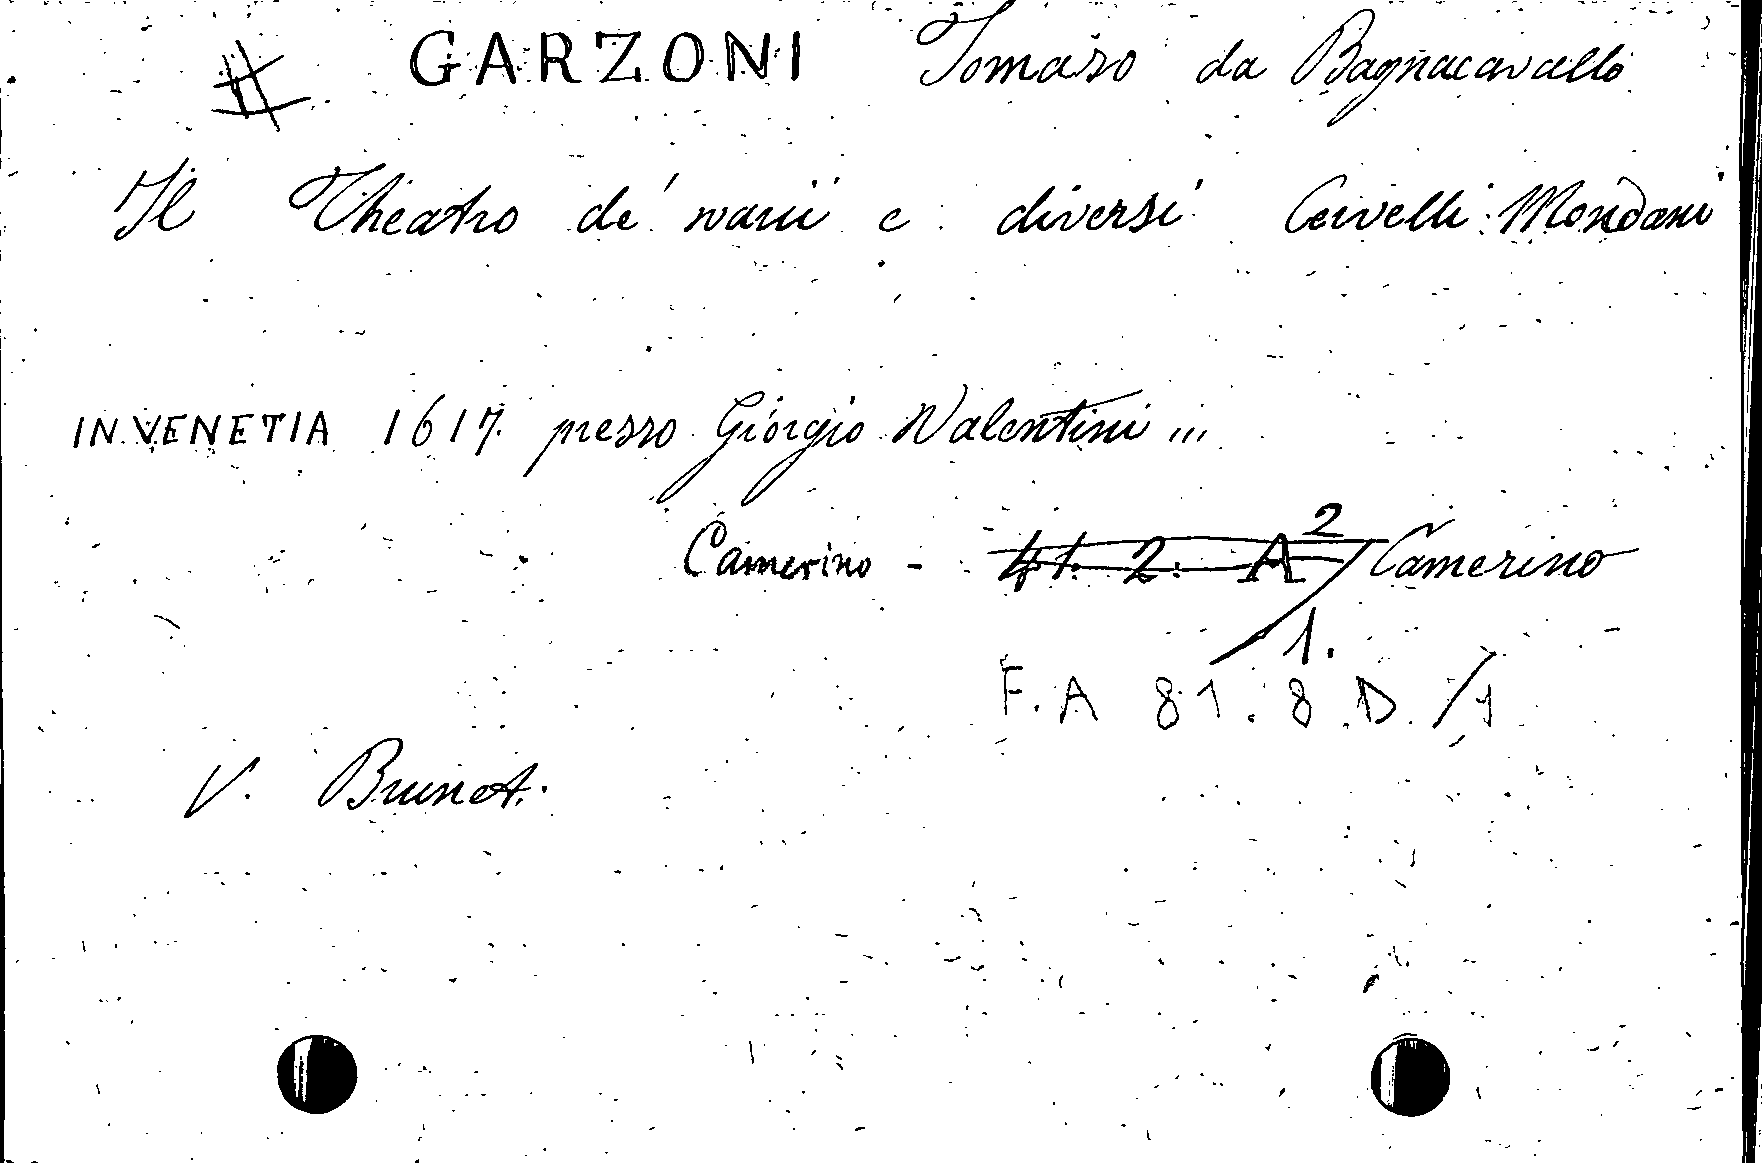 # GARZONI Tomaso da Bagnacavallo
Il Theatro de' varii e diversi Cervelli Mondani
IN VENETIA 1617. presso Giorgio Valentini ...
Camerino - 41. 2. A 2 / Camerino
1.
F. A 81. 8. D. /1
V. Brunet.